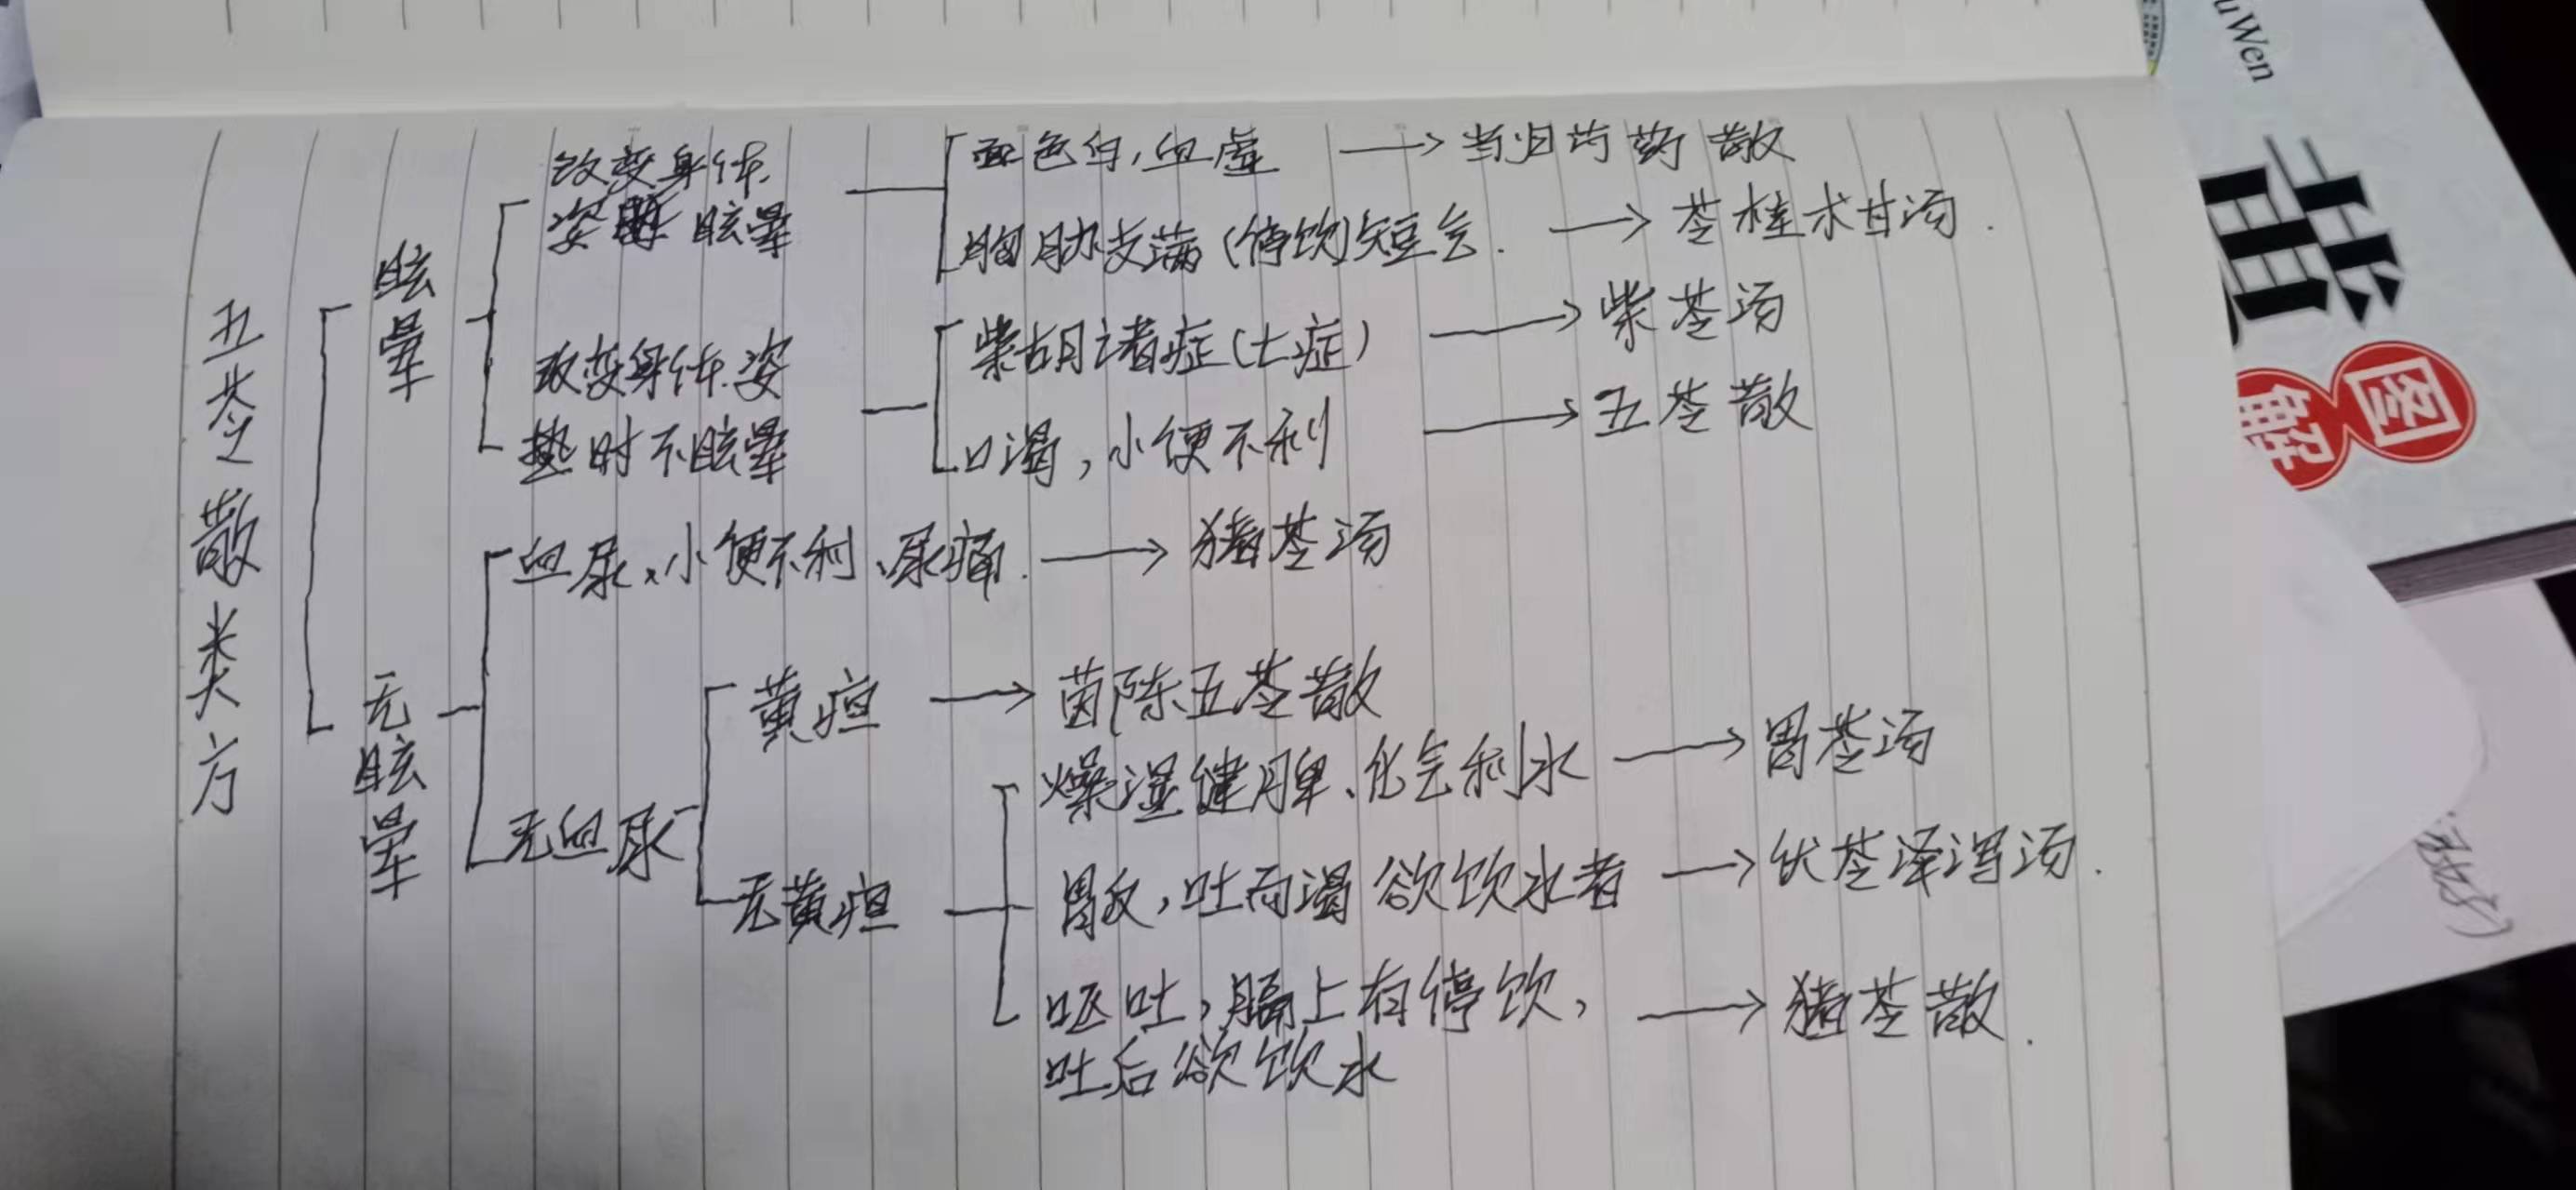 五苓散类方
眩晕
改变身体
姿 眩晕
面色白，血虚 → 当归芍药散
胸胁支满(停饮)短气. → 苓桂术甘汤.
改变身体姿
势时不眩晕
柴胡诸症(七症) → 柴苓汤
口渴，小便不利 → 五苓散
无眩晕
血尿、小便不利、尿痛. → 猪苓汤
无血尿
黄疸 → 茵陈五苓散
无黄疸
燥湿健脾、化气利水 → 胃苓汤
胃反，吐而渴欲饮水者 → 伏苓泽泻汤.
呕吐，膈上有停饮， → 猪苓散.
吐后欲饮水
uWen
图
解